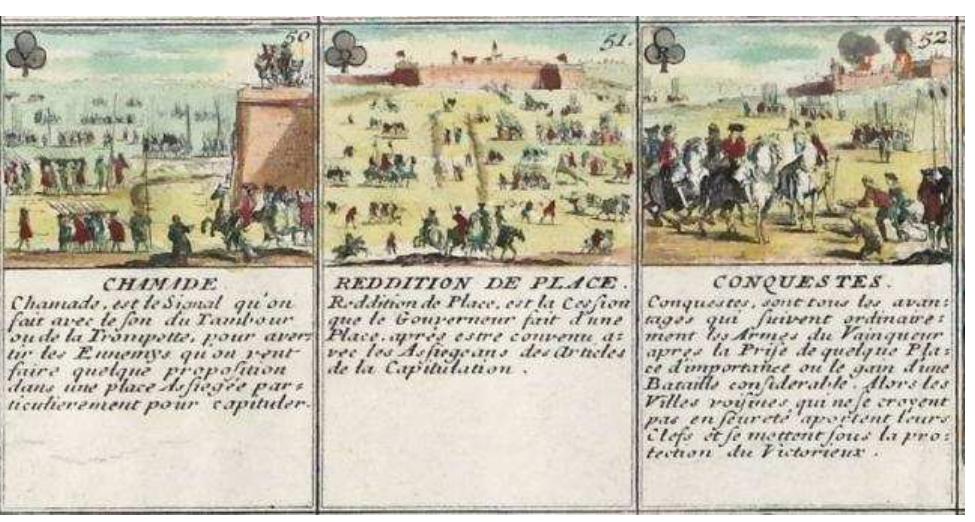 50
CHAMADE.
Chamade, est le Signal qu'on
fait avec le son du Tambour
ou de la Trompette, pour aver=
tir les Ennemys qu'on veut
faire quelque proposition
dans une place Assiegée par=
ticulierement pour capituler.
51.
REDDITION DE PLACE.
Reddition de Place, est la Cession
que le Gouverneur fait d'une
Place, après estre convenu a=
vec les Assiegeans des Articles
de la Capitulation.
52
CONQUESTES.
Conquestes, sont tous les avan=
tages qui suivent ordinaire=
ment les Armes du Vainqueur
apres la Prise de quelque Pla=
ce d'importance ou le gain d'une
Bataille considerable. Alors les
Villes voisines qui ne se croyent
pas en seureté aportent leurs
Clefs et se mettent sous la pro=
tection du Victorieux.